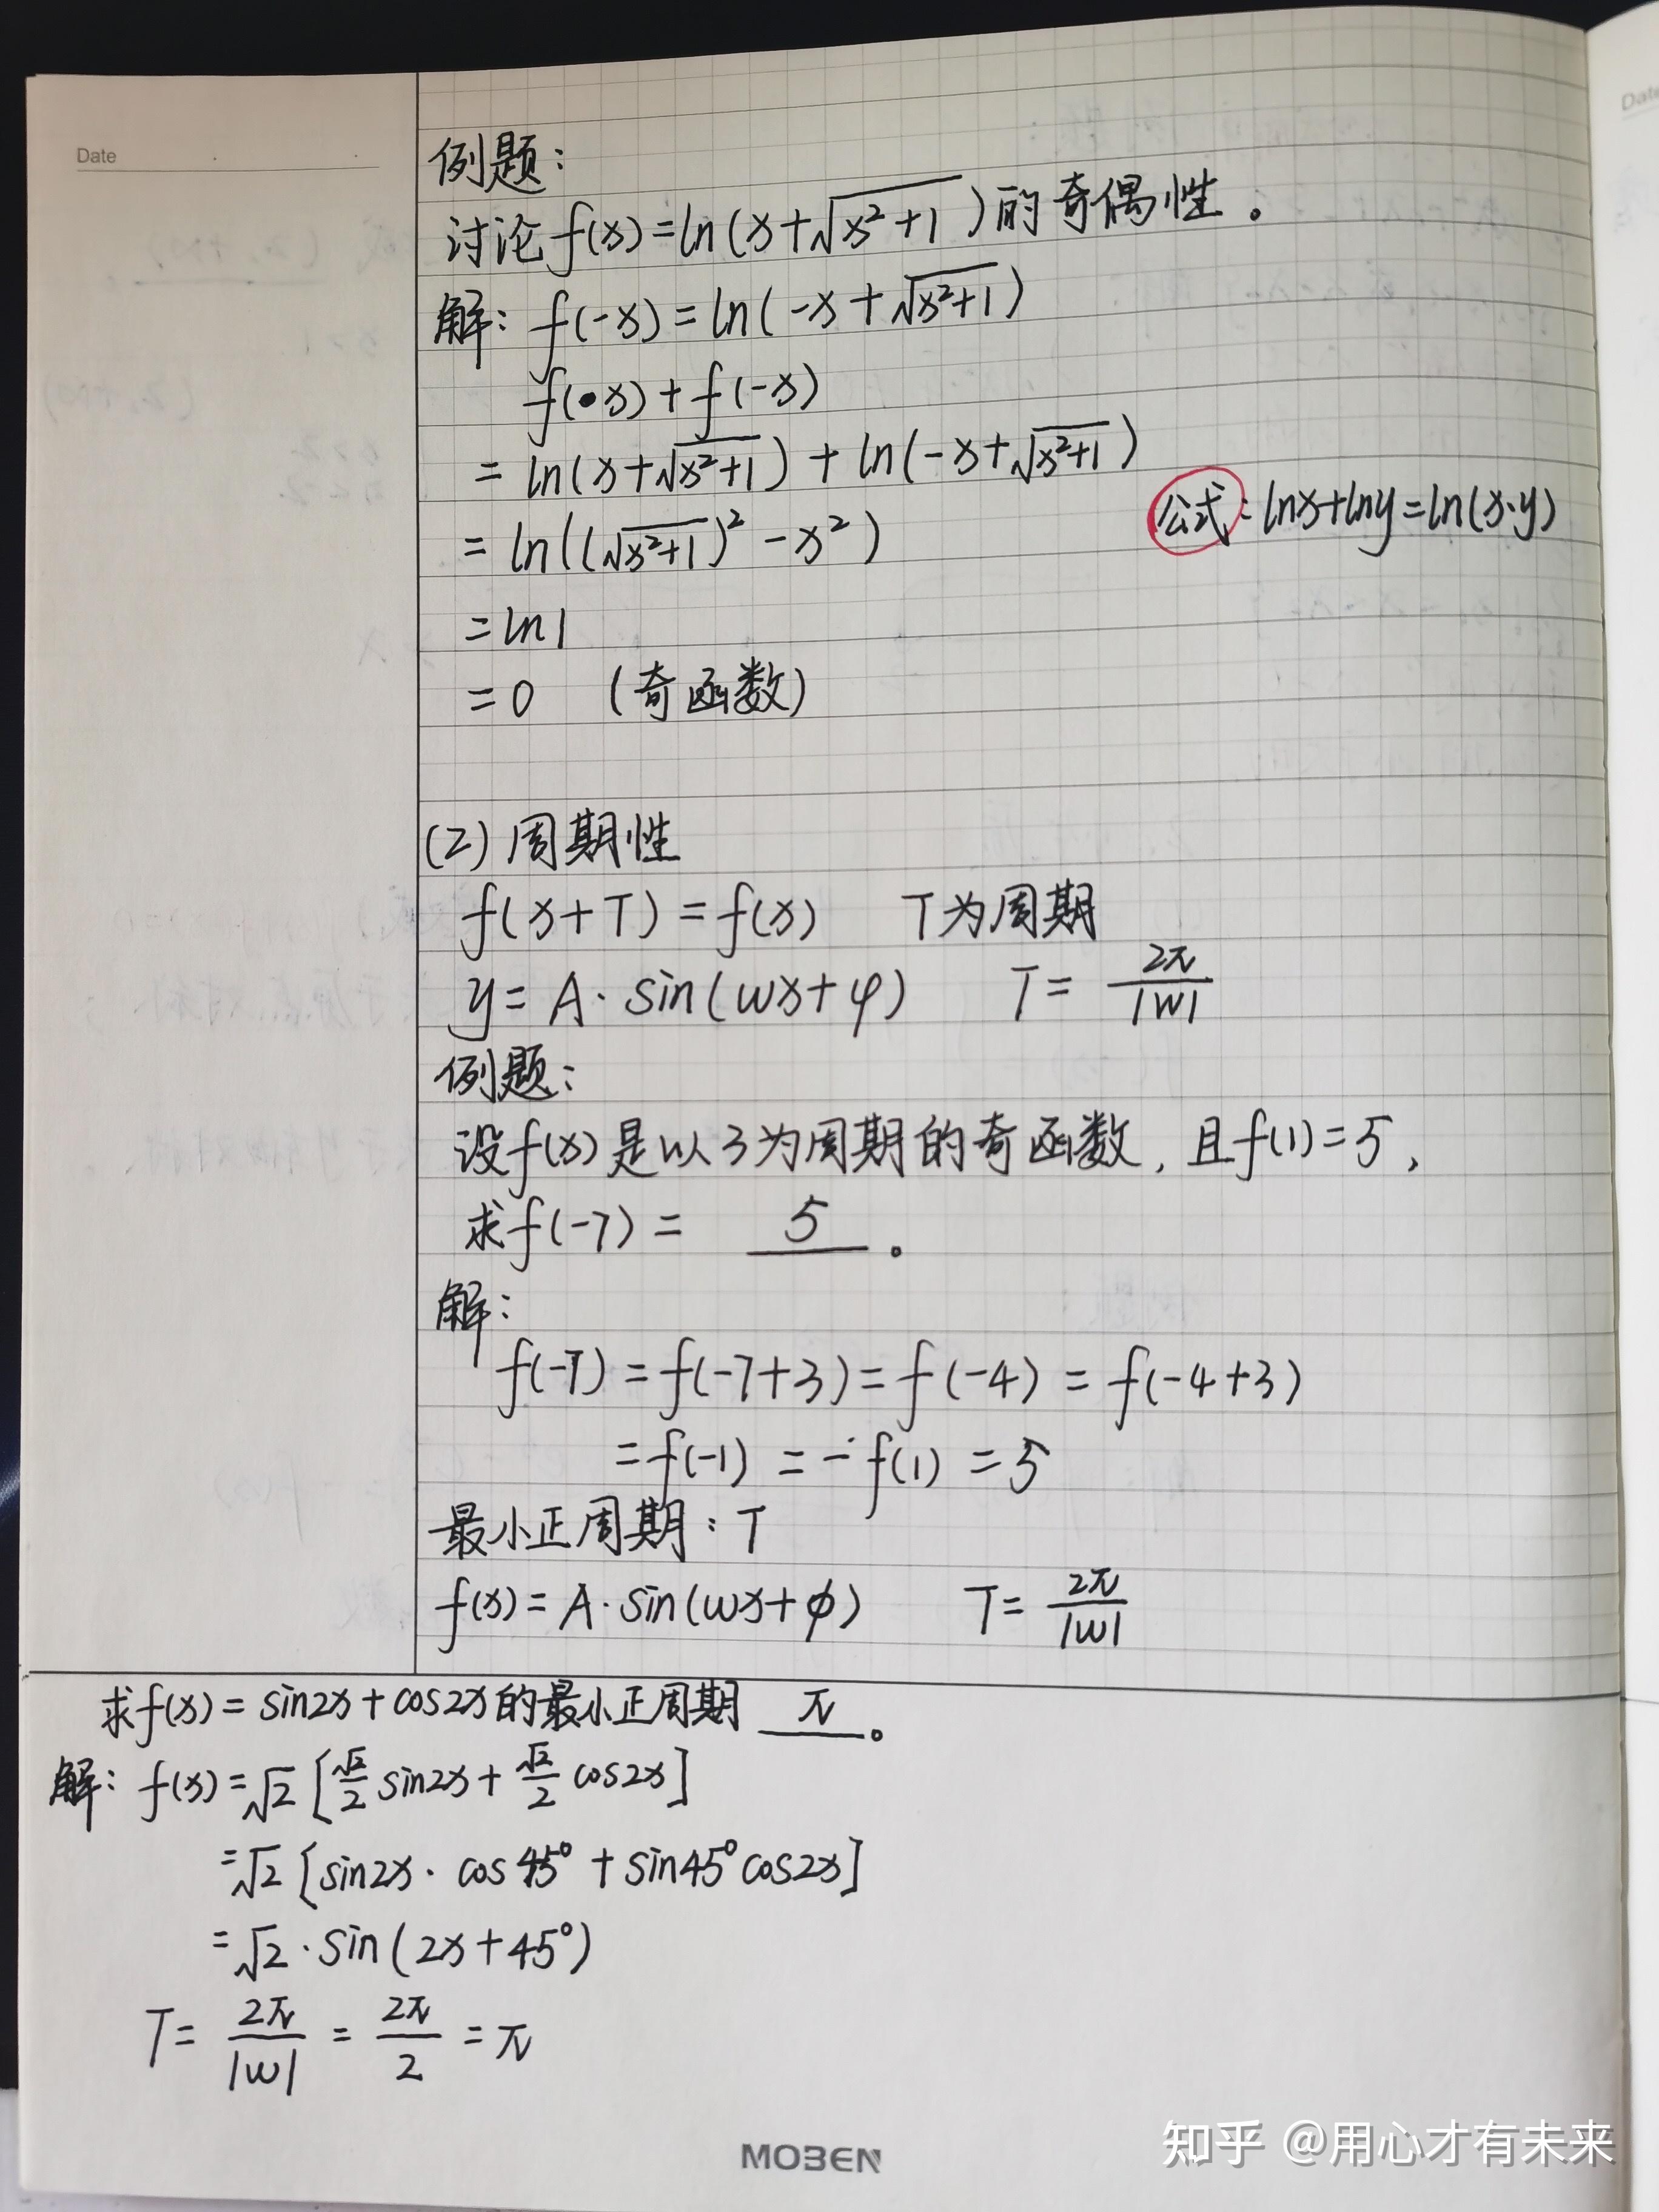 Date
例题:
讨论f(x)=ln(x+√(x²+1))的奇偶性。
解: f(-x)=ln(-x+√(x²+1))
f(x)+f(-x)
=ln(x+√(x²+1))+ln(-x+√(x²+1))
公式: lnx+lny=ln(x·y)
=ln((√(x²+1))²-x²)
=ln1
=0 (奇函数)
(2)周期性
f(x+T)=f(x) T为周期
y=A·sin(wx+φ) T=2π/|w|
例题:
设f(x)是以3为周期的奇函数,且f(1)=5,
求f(-7)= 5 。
解:
f(-7)=f(-7+3)=f(-4)=f(-4+3)
=f(-1)=-f(1)=5
最小正周期:T
f(x)=A·sin(wx+φ) T=2π/|w|
求f(x)=sin2x+cos2x的最小正周期 π 。
解: f(x)=√2[√2/2 sin2x+√2/2 cos2x]
=√2[sin2x·cos45°+sin45°cos2x]
=√2·sin(2x+45°)
T=2π/|w|=2π/2=π
MOBEN
知乎 @用心才有未来